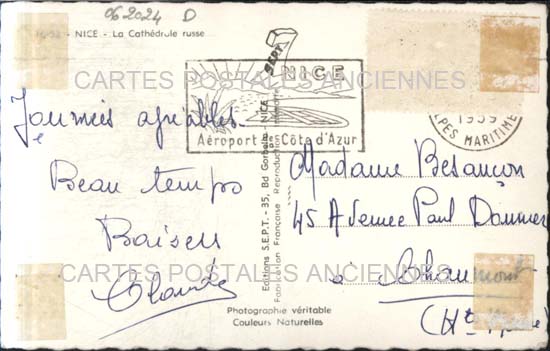 06 2024 D
- NICE - La Cathédrale russe
CARTES POSTALES ANCIENNES
SEPT
NICE
Aéroport de la Côte d'Azur
1959
PES MARITIME
Journées agréables
Beau temps
Baisers
Claude
Madame Besançon
45 Avenue Paul Doumer
à Chaumont
(Hte Marne)
Editions S.E.P.T. - 35, Bd Gorbella - NICE
Fabrication Française Reproduction
CARTES POSTALES ANCIENNES
Photographie véritable
Couleurs Naturelles